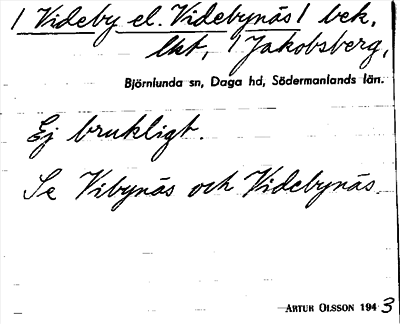 / Videby el. Videbynäs / bek.
lht, / Jakobsberg,
Björnlunda sn, Daga hd, Södermanlands län.
Ej brukligt.
Se Vibynäs och Videbynäs.
ARTUR OLSSON 1943